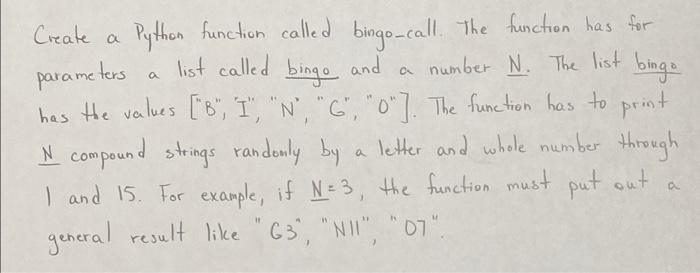 Create a Python function called bingo_call. The function has for
parameters a list called bingo and a number N. The list bingo
has the values ["B", "I", "N", "G", "O"]. The function has to print
N compound strings randomly by a letter and whole number through
1 and 15. For example, if N=3, the function must put out a
general result like "G3", "N11", "O7".